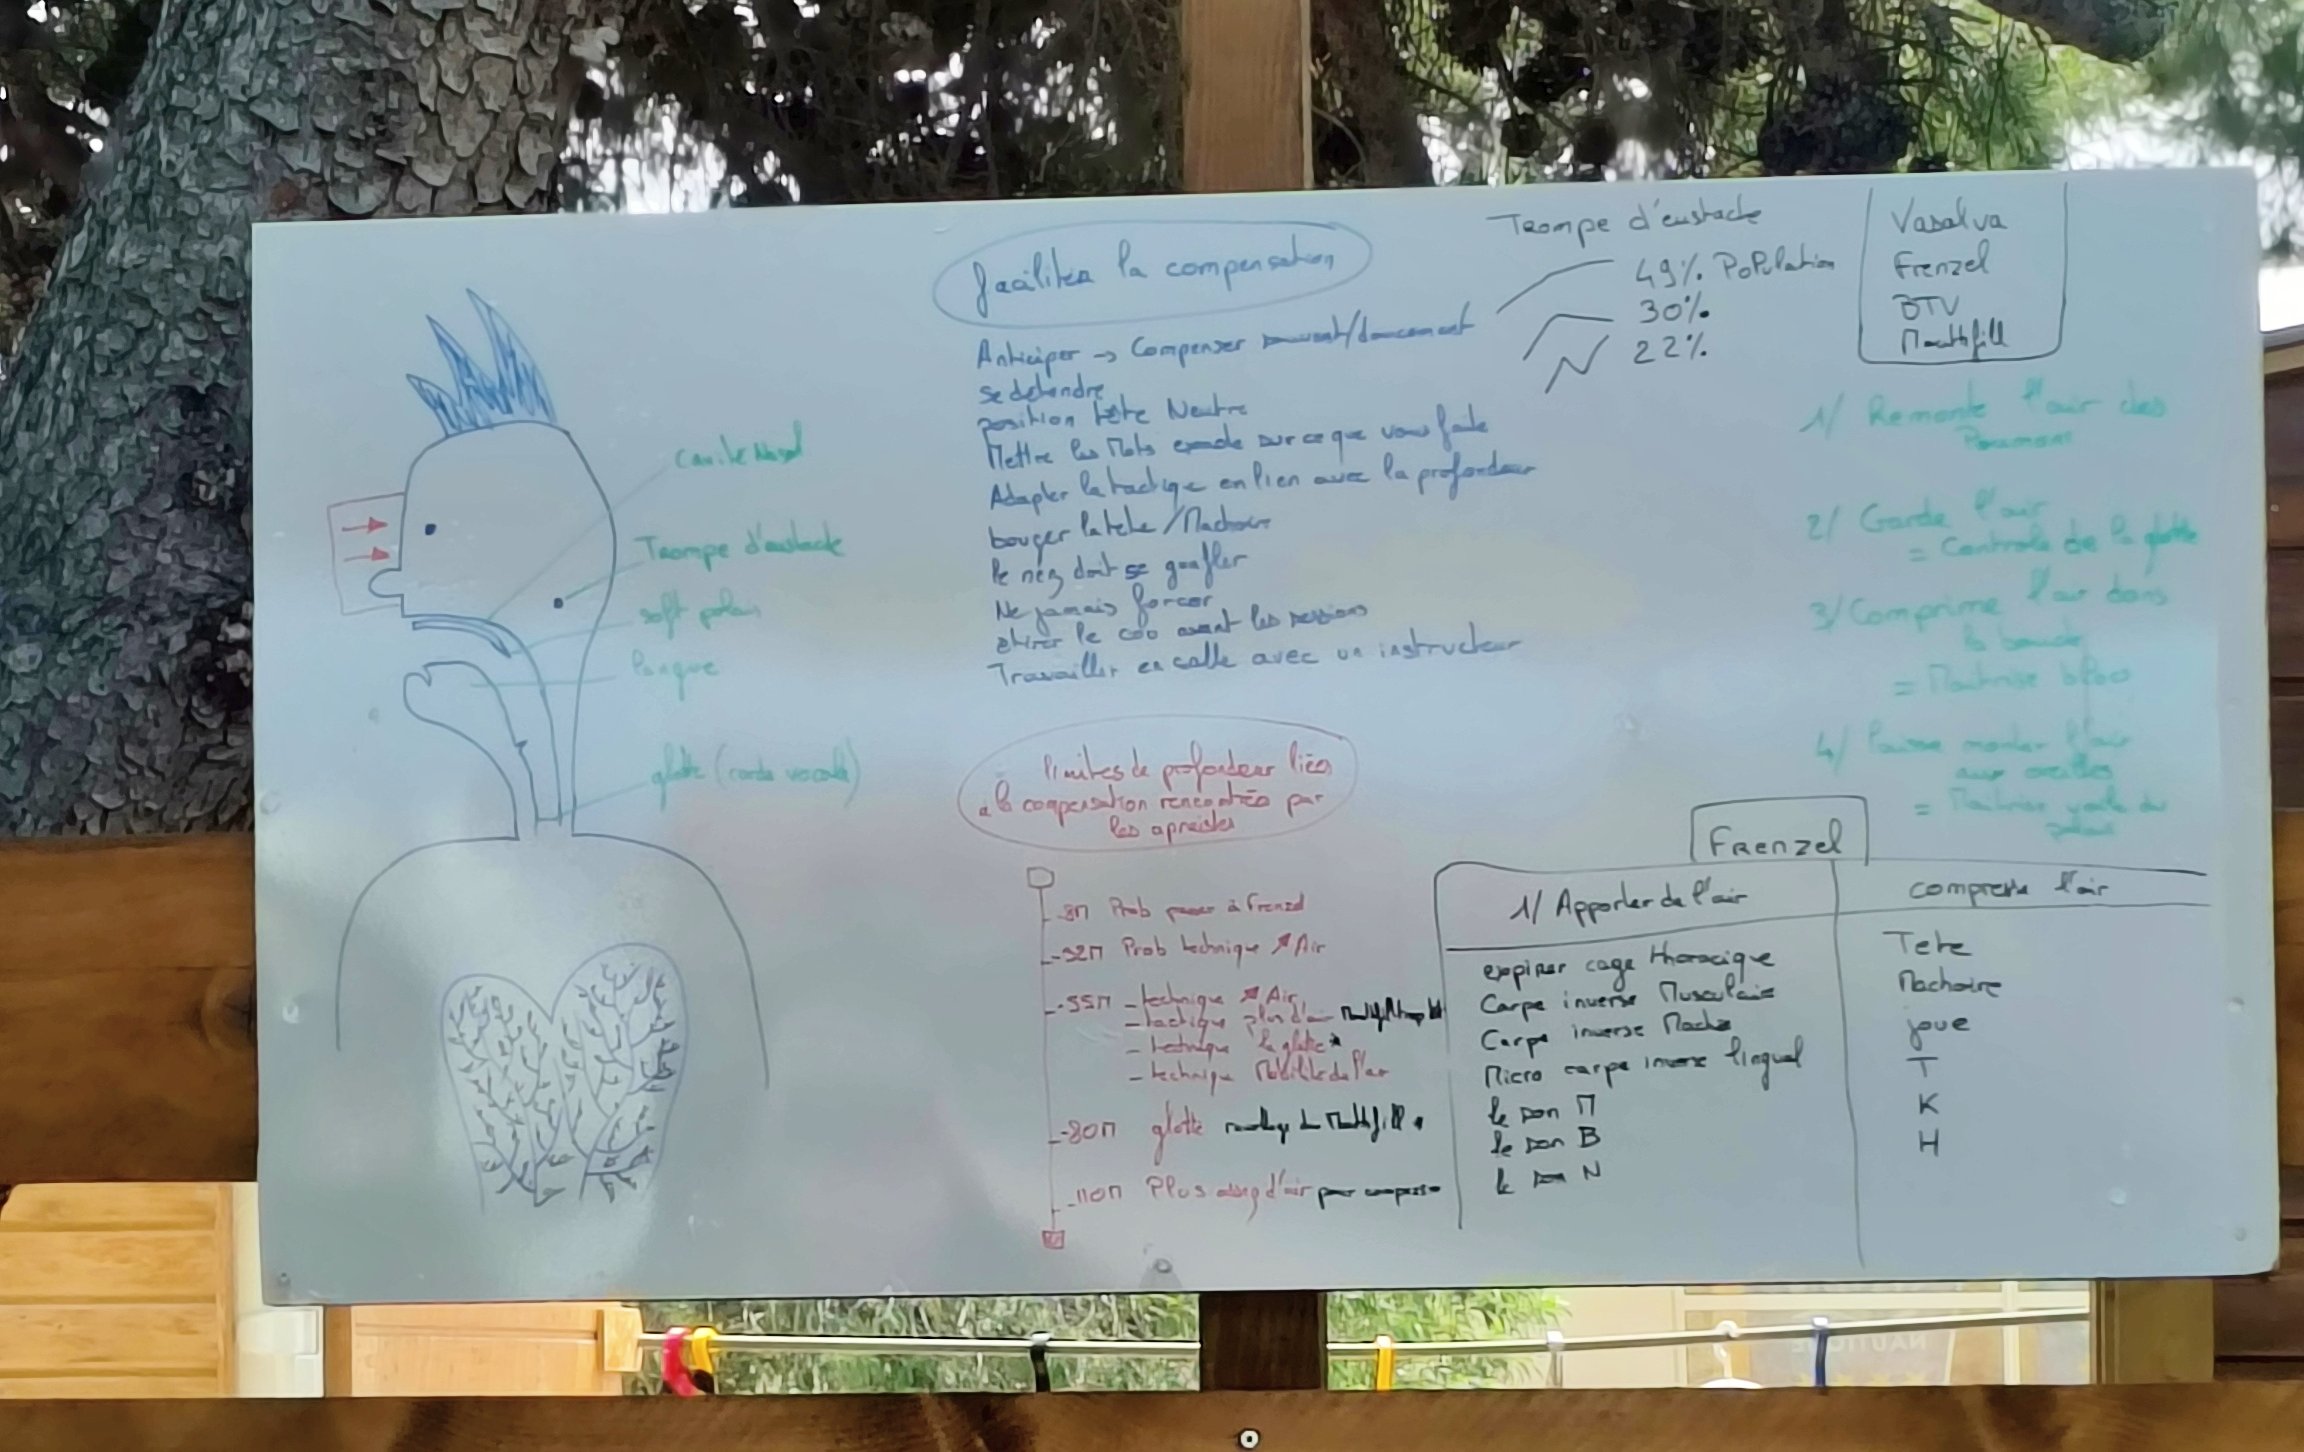 faciliter la compensation
Anticiper → Compenser souvent/doucement
se detendre
position tête Neutre
Mettre les Mots sur ce que vous faite
Adapter la tactique en lien avec la profondeur
bouger la tete / Machoire
le nez doit se gonfler
Ne jamais forcer
etirer le cou avant les sessions
Travailler en calle avec un instructeur
Trompe d'eustache
49% Population
30%
22%
Vasalva
Frenzel
BTV
Mouthfill
cavite Nasal
Trompe d'eustache
soft palais
langue
glotte (corde vocale)
1/ Remonte l'air des
Poumons
2/ Garde l'air
= Controle de la glotte
3/ Comprime l'air dans
la bouche
= Maitrise bloc
4/ laisse monter l'air
aux oreilles
= Maitrise voile du
palais
limites de profondeur liées
a la compensation rencontrées par
les apneistes
-8M Prob passer à Frenzel
-32M Prob technique ↗ Air
-55M - technique ↗ Air
- tactique plus d'air
- technique la glotte
- technique Mobilite de l'air
-80M glotte Mouthfill
-110M Plus assez d'air pour compenser
Frenzel
1/ Apporter de l'air
compresse l'air
expirer cage thoracique
Carpe inverse Musculaire
Carpe inverse Macho
Micro carpe inverse lingual
le son M
le son B
le son N
Tete
Machoire
joue
T
K
H
NAUTIQUE